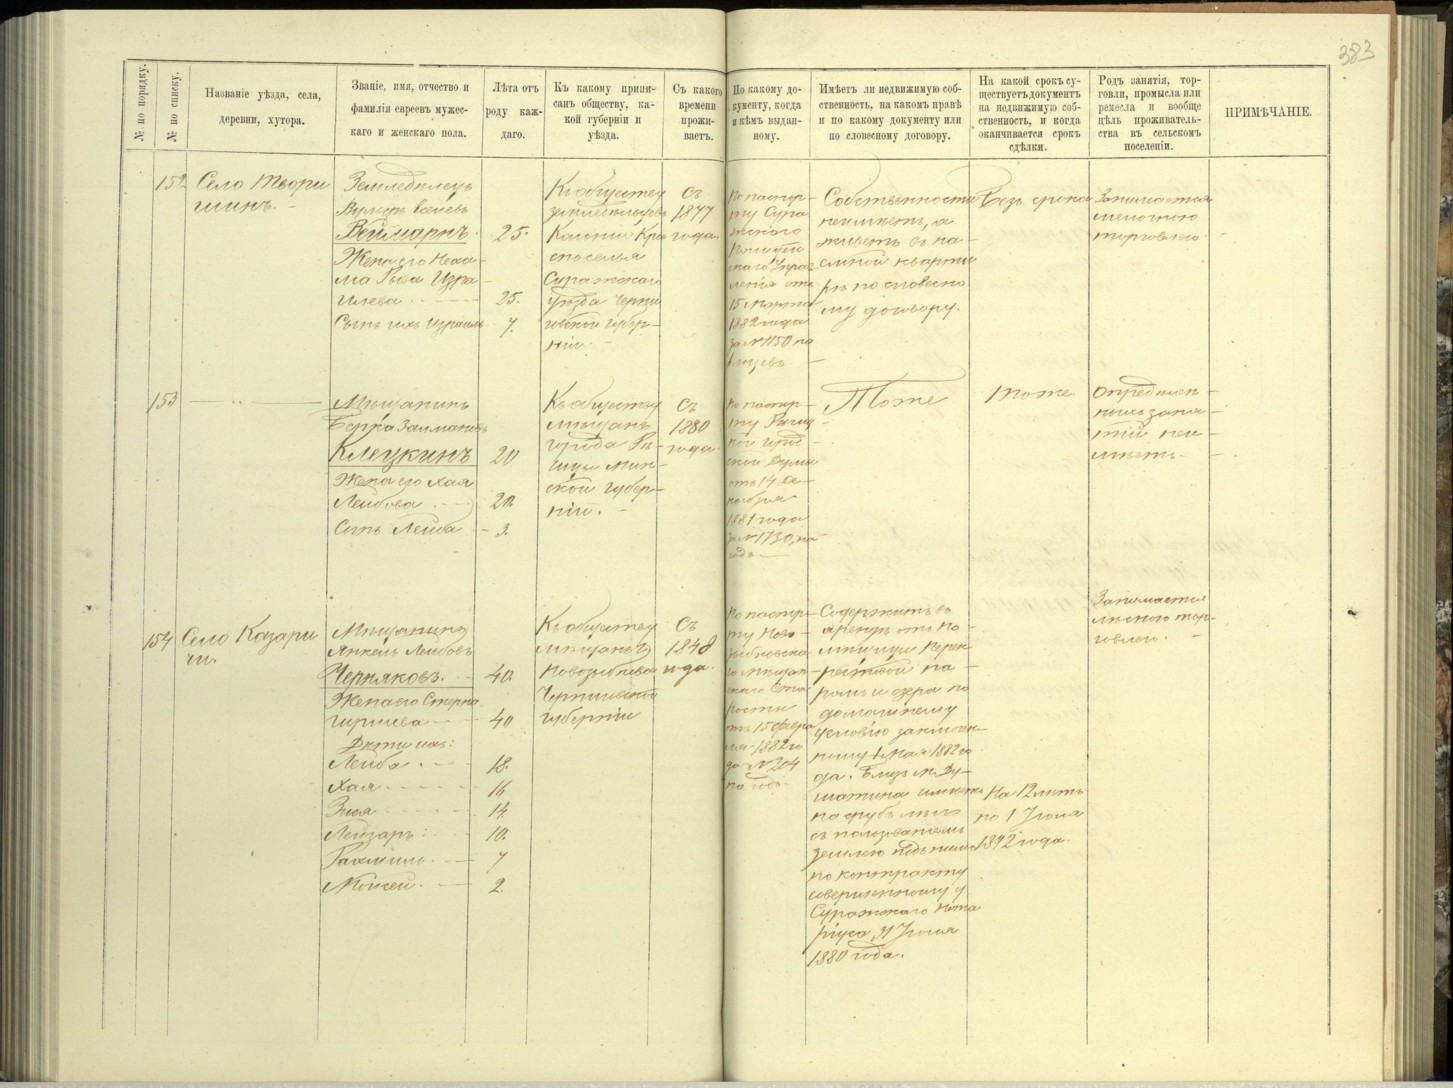 383
№ по порядку.
№ по списку.
Названіе уѣзда, села,
деревни, хутора.
Званіе, имя, отчество и
фамилія евреевъ мужес-
каго и женскаго пола.
Лѣта отъ
роду каж-
даго.
Къ какому припи-
санъ обществу, ка-
кой губерніи и
уѣзда.
Съ какого
времени
прожи-
ваетъ.
По какому до-
кументу, когда
и кѣмъ выдан-
ному.
Имѣетъ ли недвижимую соб-
ственность, на какомъ правѣ
и по какому документу или
по словесному договору.
На какой срокъ су-
ществуетъ документъ
на недвижимую соб-
ственность, и когда
оканчивается срокъ
сдѣлки.
Родъ занятія, тор-
говли, промысла или
ремесла и вообще
цѣль проживатель-
ства въ сельскомъ
поселеніи.
ПРИМѢЧАНІЕ.
152
Село Твори
шинъ.
Земледѣлецъ
Вейманъ
25.
Жена его Неха-
ма Изра-
илева
25.
Сынъ ихъ Израиль
7.
Къ обществу
земледѣльцевъ
Колоніи Кра
споселья
Суражскаго
Уѣзда Черни
говской губер-
ніи
съ
1877
года.
По паспор-
ту Сура
жскаго
Полицей
скаго Упра
вленія отъ
15 марта
1882 года
за № 1150 на
Собственности
неимѣетъ, а
живетъ въ на-
емной кварти
рѣ по словесно
му договору.
Безъ срока
Занимается
мелочною
торговлею
153
Мѣщанинъ
Берка Залмановъ
Клецкинъ
20
Жена его Хая
Лейбова
20.
Сынъ Лейба
3.
Къ обществу
мѣщанъ
города Рѣ-
чицы Мин-
ской губер-
ніи.
Съ
1880
года.
По паспор-
ту Рѣчиц
кой город
ской Думы
отъ 14 
1881 года
за № 1730, на
годъ
Тоже
тоже
Опредѣлен-
ныхъ заня-
тій неи-
мѣетъ.
154
Село Козари
чи.
Мѣщанинъ
Янкель Лейбовъ
Черняковъ.
40.
Жена его Стерна
Гиршева
40
Дѣти ихъ:
Лейба.
18.
Хая
16
Зися
14.
Лейзаръ
10.
Рахмиль.
7
Мойсей.
2.
Къ обществу
мѣщанъ
Новозыбкова
Черниговской
губерніи
Съ
1848
года.
По паспор-
ту Ново-
зыбковска
го мѣщан
скаго Ста
росты
отъ 15 февра
ля 1882 го
да № 204
на годъ
Содержитъ въ
арендѣ отъ по-
мѣщицы
па-
ромъ и озера по
домашнему
условію заключен-
ному 1 Мая 1882 го
да. Близъ м. Ду-
шатина имѣетъ
на срубъ лѣсъ
съ пользованіемъ
землею подъ нимъ
по контракту
совершенному у
Суражскаго Нота
ріуса, 31 Іюля
1880 года.
На 12 лѣтъ
по 1 Іюля
1892 года.
Занимается
лѣсною тор-
говлею.